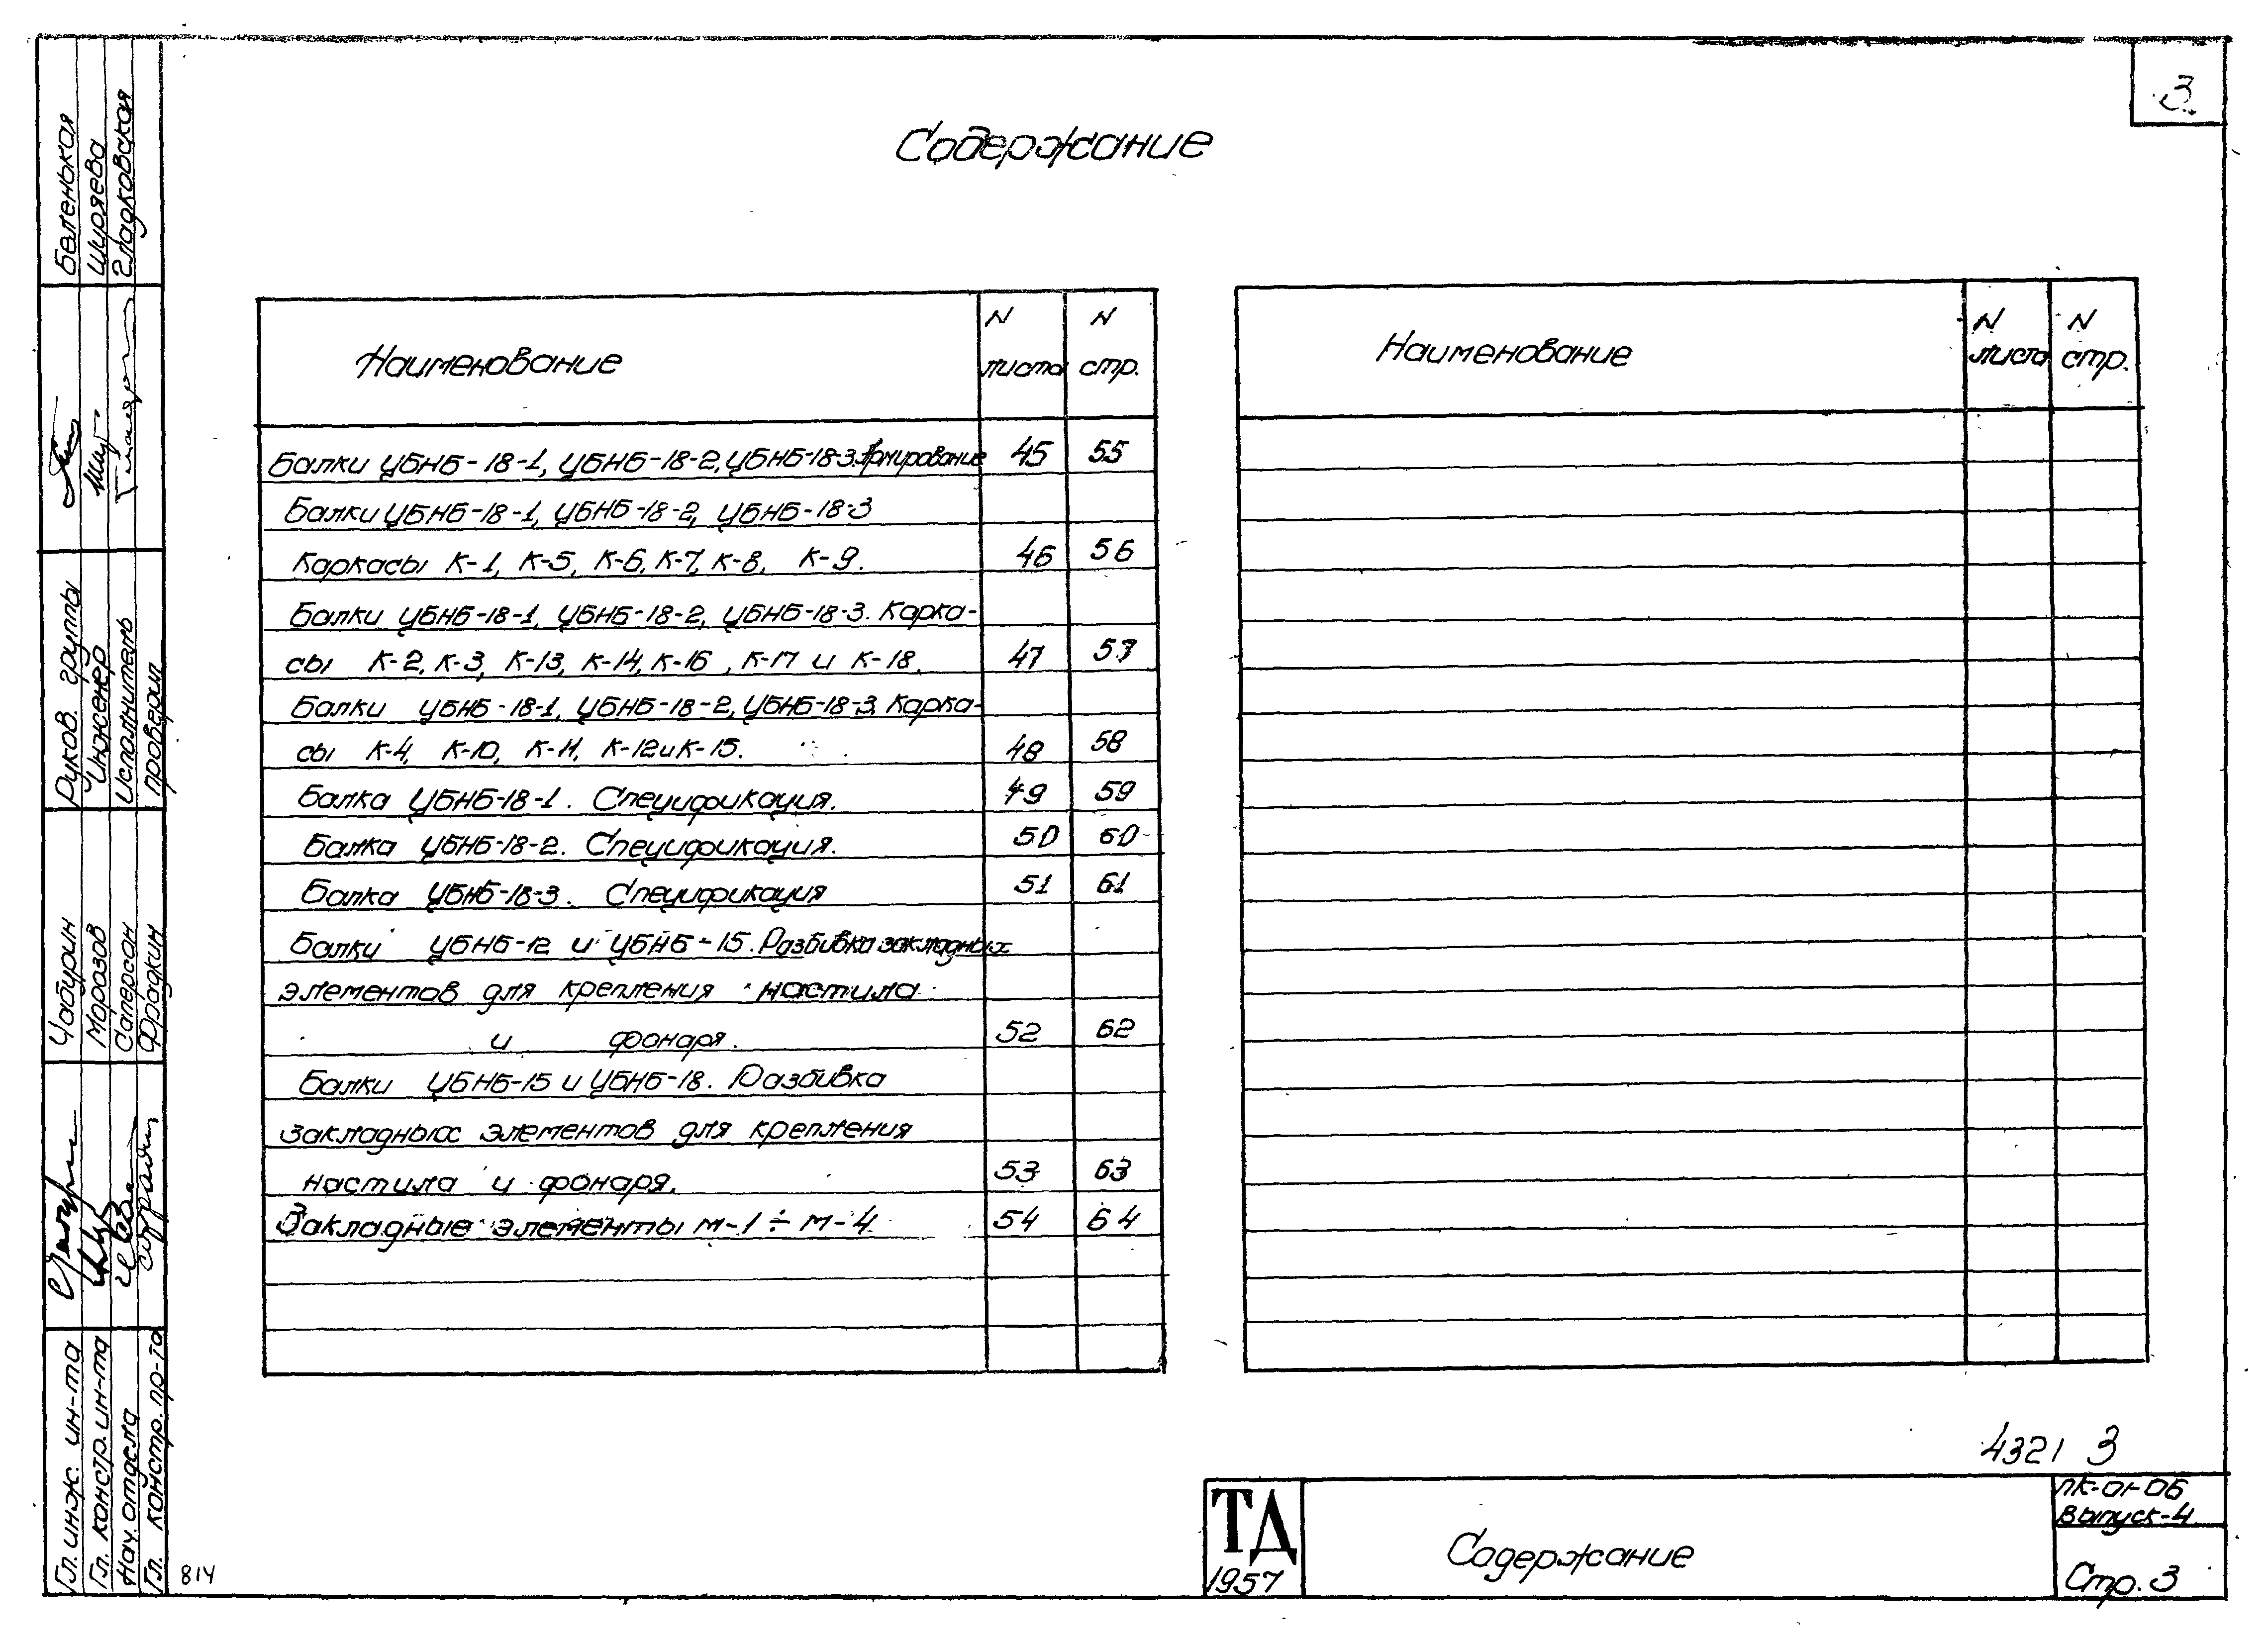 3
Содержание
Наименование N листа N стр.
Балки УБНБ-18-1, УБНБ-18-2, УБНБ-18-3. Армирование 45 55
Балки УБНБ-18-1, УБНБ-18-2, УБНБ-18-3
Каркасы К-1, К-5, К-6, К-7, К-8, К-9. 46 56
Балки УБНБ-18-1, УБНБ-18-2, УБНБ-18-3. Карка-
сы К-2, К-3, К-13, К-14, К-16, К-17 и К-18. 47 57
Балки УБНБ-18-1, УБНБ-18-2, УБНБ-18-3. Карка-
сы К-4, К-10, К-11, К-12 и К-15. 48 58
Балка УБНБ-18-1. Спецификация. 49 59
Балка УБНБ-18-2. Спецификация. 50 60
Балка УБНБ-18-3. Спецификация 51 61
Балки УБНБ-12 и УБНБ-15. Разбивка закладных
элементов для крепления настила
и фонаря. 52 62
Балки УБНБ-15 и УБНБ-18. Разбивка
закладных элементов для крепления
настила и фонаря. 53 63
Закладные элементы М-1 ÷ М-4 54 64
Наименование N листа N стр.
Гл. инж. ин-та Чабурин Руков. группы Беленькая
Гл. констр. ин-та Морозов Инженер Ширяева
Нач. отдела Саперсон Исполнитель Гладковская
Гл. констр. пр-та Фрадкин проверил
814
4321 3
ТД
1957
Содержание
ПК-01-06
Выпуск-4
Стр. 3